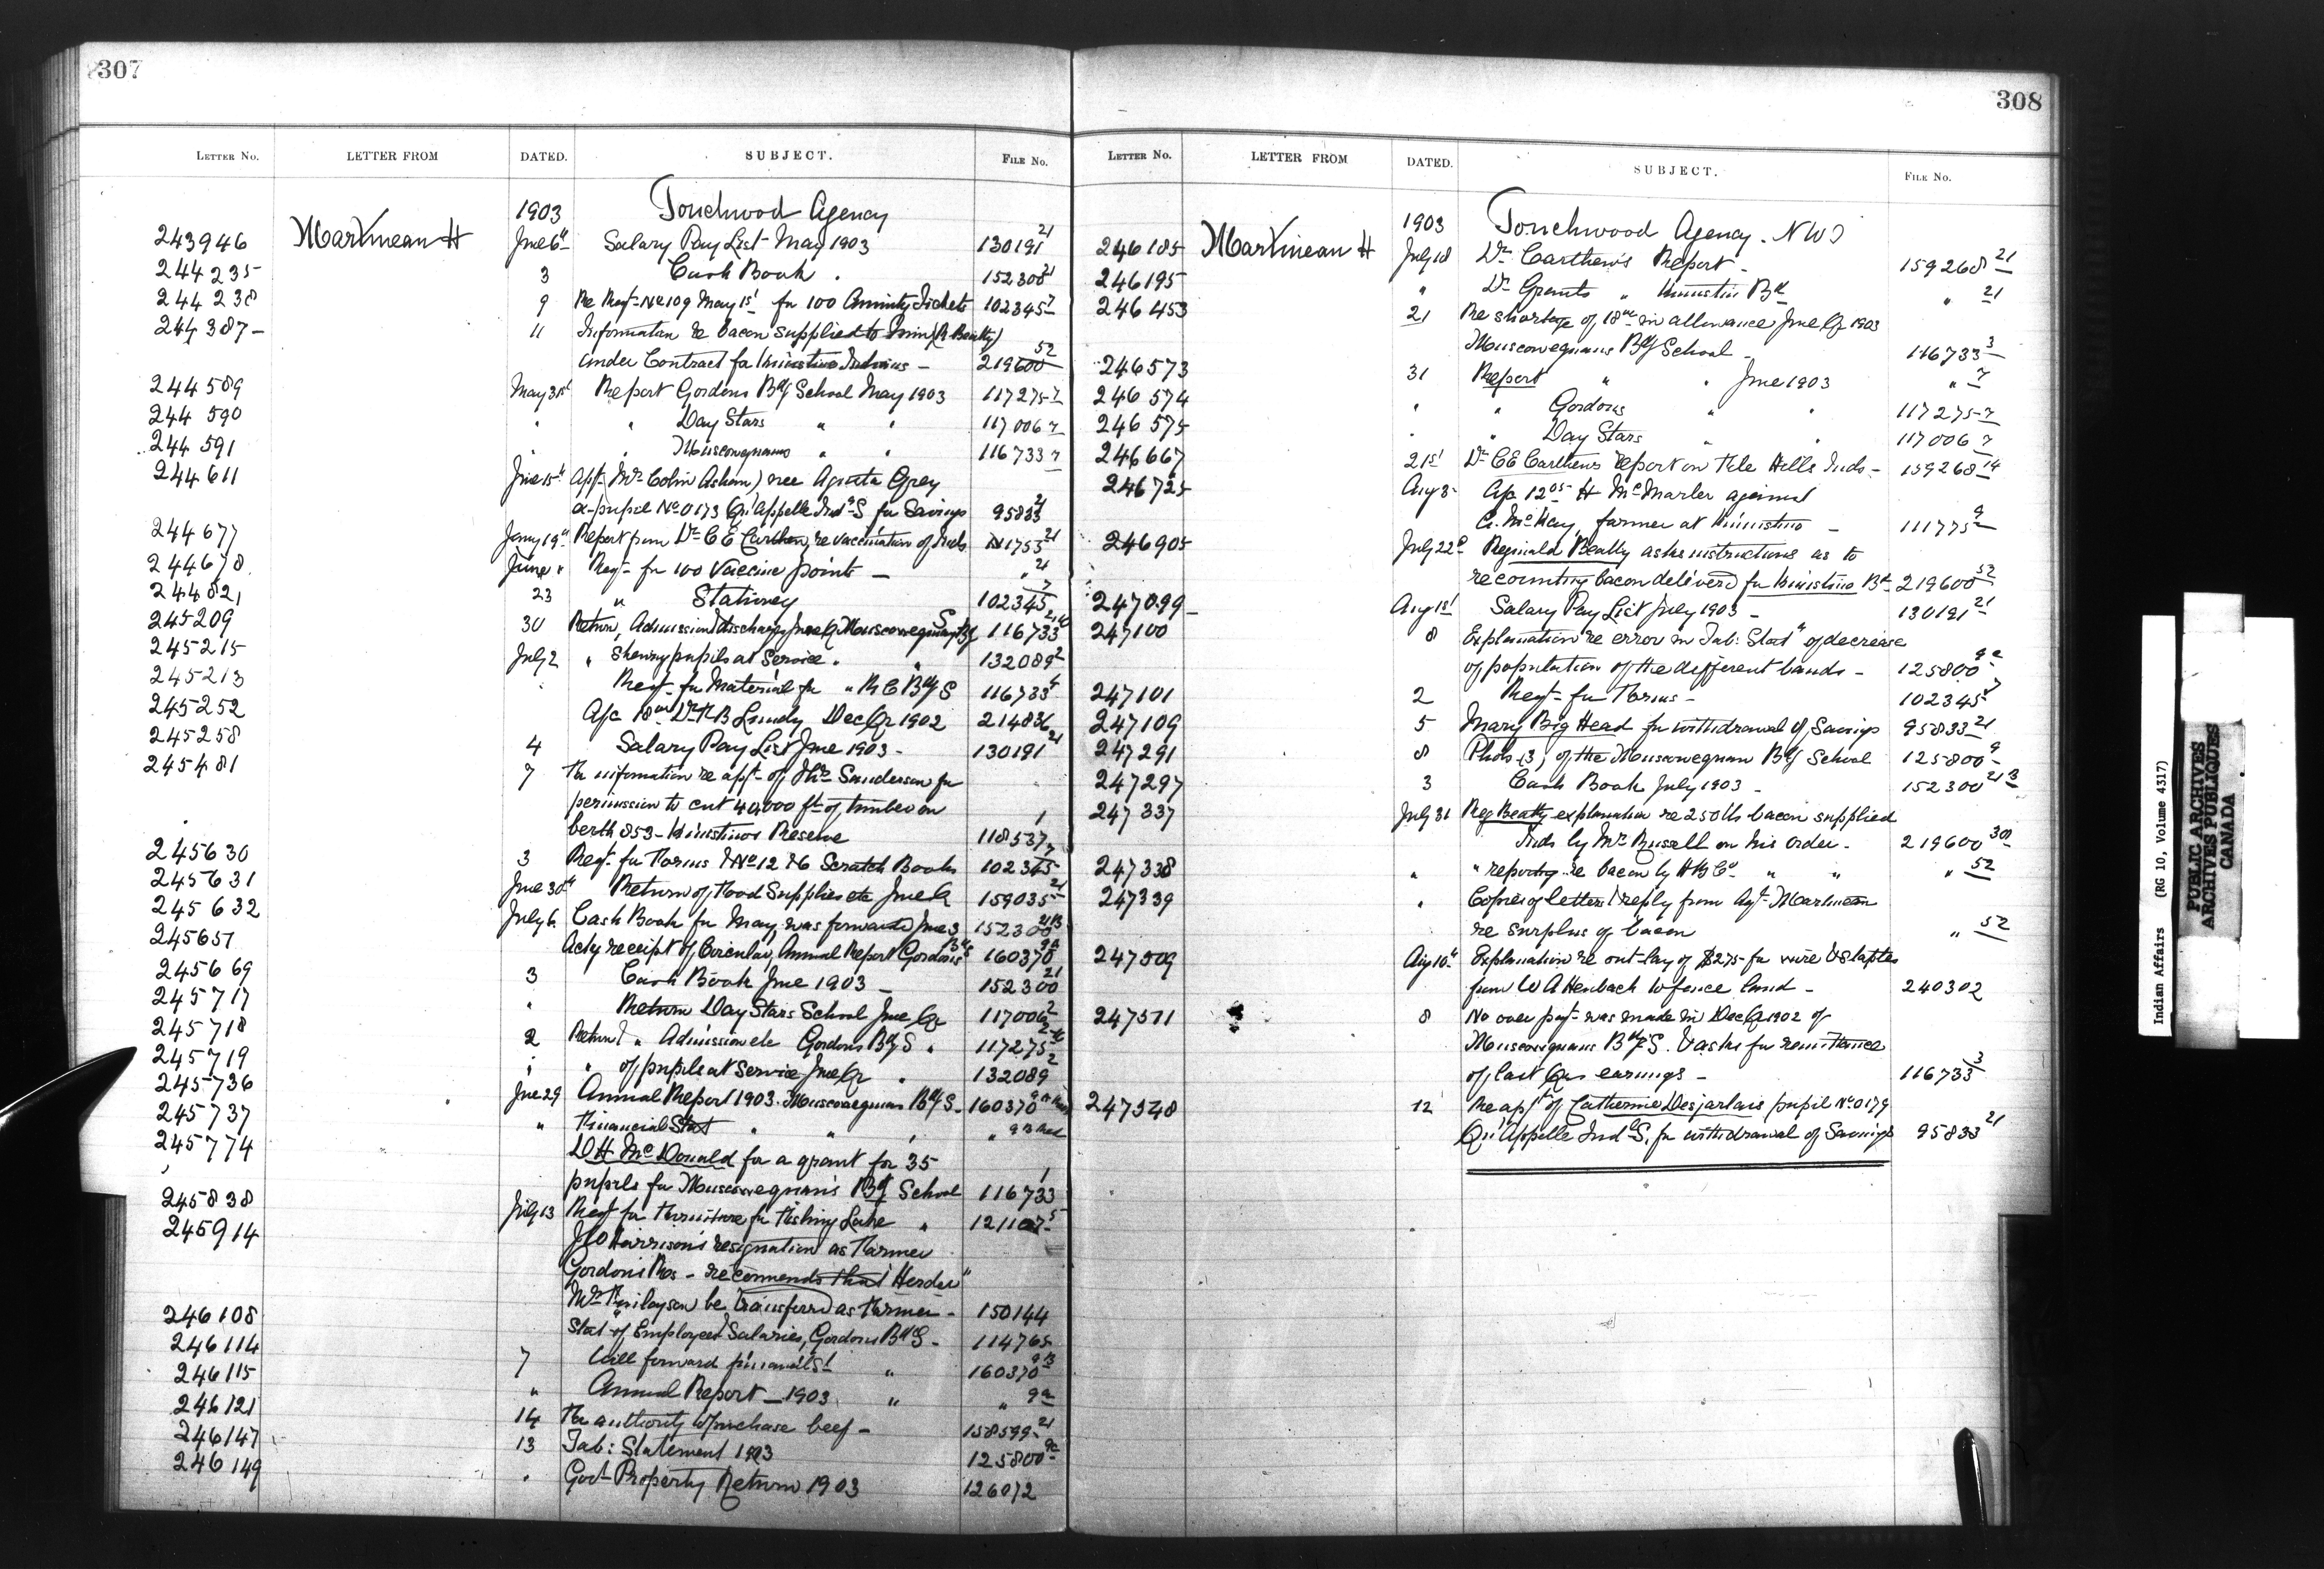 307
LETTER NO. LETTER FROM DATED. SUBJECT. FILE NO.
1903 Touchwood Agency
243946 Martineau H June 6th Salary Pay List May 1903 130191 21
244235 3 Cash Book . 152300 21
244238 9 Re Reqt No 109 May 1st for 100 Annuity Tickets 102345 7
244387 11 Information re bacon supplied to him (R Beatty)
under Contract for Kinistino Indians - 219600 52
244589 May 31st Report Gordons Bdg School May 1903 117275-7
244590 " " Day Stars " " 117006 7
244591 " " Muscowequans " " 116733 7
244611 June 15th App. Mrs Colin Asham) nee Agusta Grey
ex-pupil No 0173 Qu'Appelle Indl S for Savings 95833 21
244677 Jany 19th Report from Dr C E Carthew, re vaccination of Inds 111753 21
244678 June " Reqt for 100 Vaccine points - " 21
244821 23 " Stationery 102345 7
245209 30 Return, Admission & discharge June Qr Muscowequans Bdg S 116733
245215 July 2 " Shewing pupils at Service . " 132089 2
245213 Reqt for Material for " R C Bdg S 116733
245252 A/c 18 00 Dr R B Lundy Dec Qr 1902 214836
245258 4 Salary Pay List June 1903 - 130191 21
245481 7 Fur information re appt of Thos Sanderson for
permission to cut 40,000 ft of timber on
berth 853 - Kinistinos Reserve 118537 1
245630 3 Reqt for Forms & No 12 & 6 Scratch Books 102345 7
245631 June 30th Return of Food Supplies etc June Qr 159035 21
245632 July 6 Cash Book for May was forwarded June 3 152300 21B
245651 Ackg receipt of Circular, Annual Report Gordons Bdg S 160370 9a
245669 3 Cash Book June 1903 - 152300 21
245717 " Return Day Stars School June Qr 117006 2
245718 2 Return & " Admission etc Gordons Bdg S " 117275
245719 " " of pupils at Service June Qr . 132089 2
245736 June 29 Annual Report 1903. Muscowequans Bdg S - 160370
245737 " Financial Stat " " " "
245774 D H McDonald for a grant for 35
pupils for Muscowequan's Bdg School 116733 1
245838 July 13 Reqt for Furniture for Fishing Lake " 121107 5
245914 J O Harrison's resignation as Farmer
Gordons Res - recommends that Herder
Mr Finlayson be transferred as Farmer - 150144
246108 Stat of Employees Salaries, Gordons Bdg S - 114765
246114 7 Will forward financial St " 160370 9B
246115 " Annual Report - 1903 " " 9a
246121 14 Fur authority to purchase beef - 158599 21
246147 13 Tab: Statement 1903 125800 9c
246149 " Govt Property Return 1903 126072
308
LETTER NO. LETTER FROM DATED. SUBJECT. FILE NO.
1903 Touchwood Agency. NWT
246185 Martineau H July 18 Dr Carthew's Report - 159268 21
246195 " Dr Grants " Kinistin Bd " 21
246453 21 Re shortage of 18 00 in allowance June Qr 1903
Muscowequans Bdg School - 116733 3
246573 31 Report " " June 1903 " 7
246574 " " Gordons " " 117275-7
246575 " " Day Stars " " 117006 7
246667 21st Dr C E Carthews report on File Hills Inds - 159268 14
246725 Aug 3 A/c 12 05 H McMarler against
G. McKay, farmer at Kinistino - 111775 9
246905 July 22d Reginald Beatty asks instructions as to
recounting bacon delivered for Kinistino Bd 219600 52
247099 Aug 1st Salary Pay List July 1903 - 130191 21
247100 8 Explanation re error in Tab: Stat of decrease
of population of the different bands - 125800 9c
247101 2 Reqt for Forms - 102345 7
247109 5 Mary Big Head for withdrawal of Savings 95833 21
247291 8 Photos (3) of the Muscowequan Bdg School 125800 9
247297 3 Cash Book July 1903 - 152300 21B
247337 July 31 Reg Beatty explanation re 250 lbs bacon supplied
Inds by Mr Russell on his order. 219600
247338 " " reporting re bacon by H B Co " " " 52
247339 " Copies of letter & reply from Agt Martineau
re surplus of bacon " 52
247509 Aug 10th Explanation re out-lay of $275 for wire & staples
from W A Heubach to fence land - 240302
247511 8 No over payt was made in Dec Qr 1902 of
Muscowequans Bdg S. & asks for remittance
of last Qrs earnings - 116733 3
247548 12 Re appt of Catherine Desjarlais pupil No 0179
Qu'Appelle Indl S. for withdrawal of Savings 95833 21
Indian Affairs (RG 10, Volume 4317)
PUBLIC ARCHIVES
ARCHIVES PUBLIQUES
CANADA